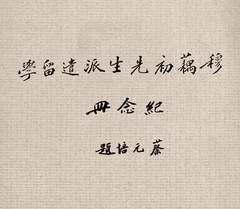 穆藕初先生派遣留學
紀念冊
蔡元培題